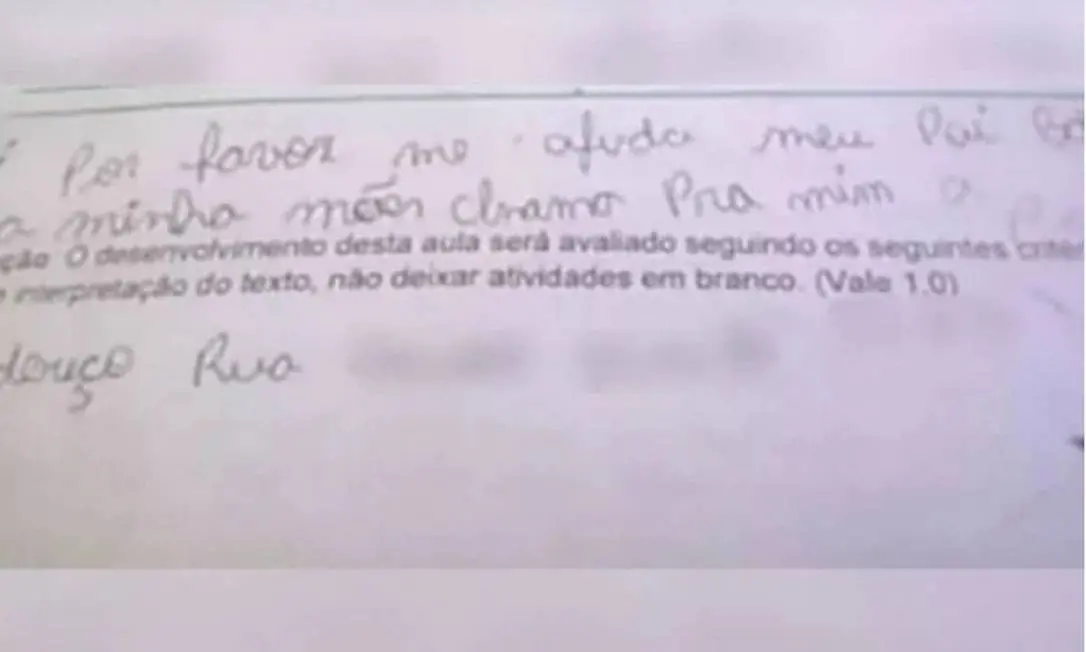 Por favor me ajuda meu Pai
a minha mãen chamo Pra mim a
ção O desenvolvimento desta aula será avaliado seguindo os seguintes crité
e interpretação do texto, não deixar atividades em branco. (Vale 1.0)
Rua